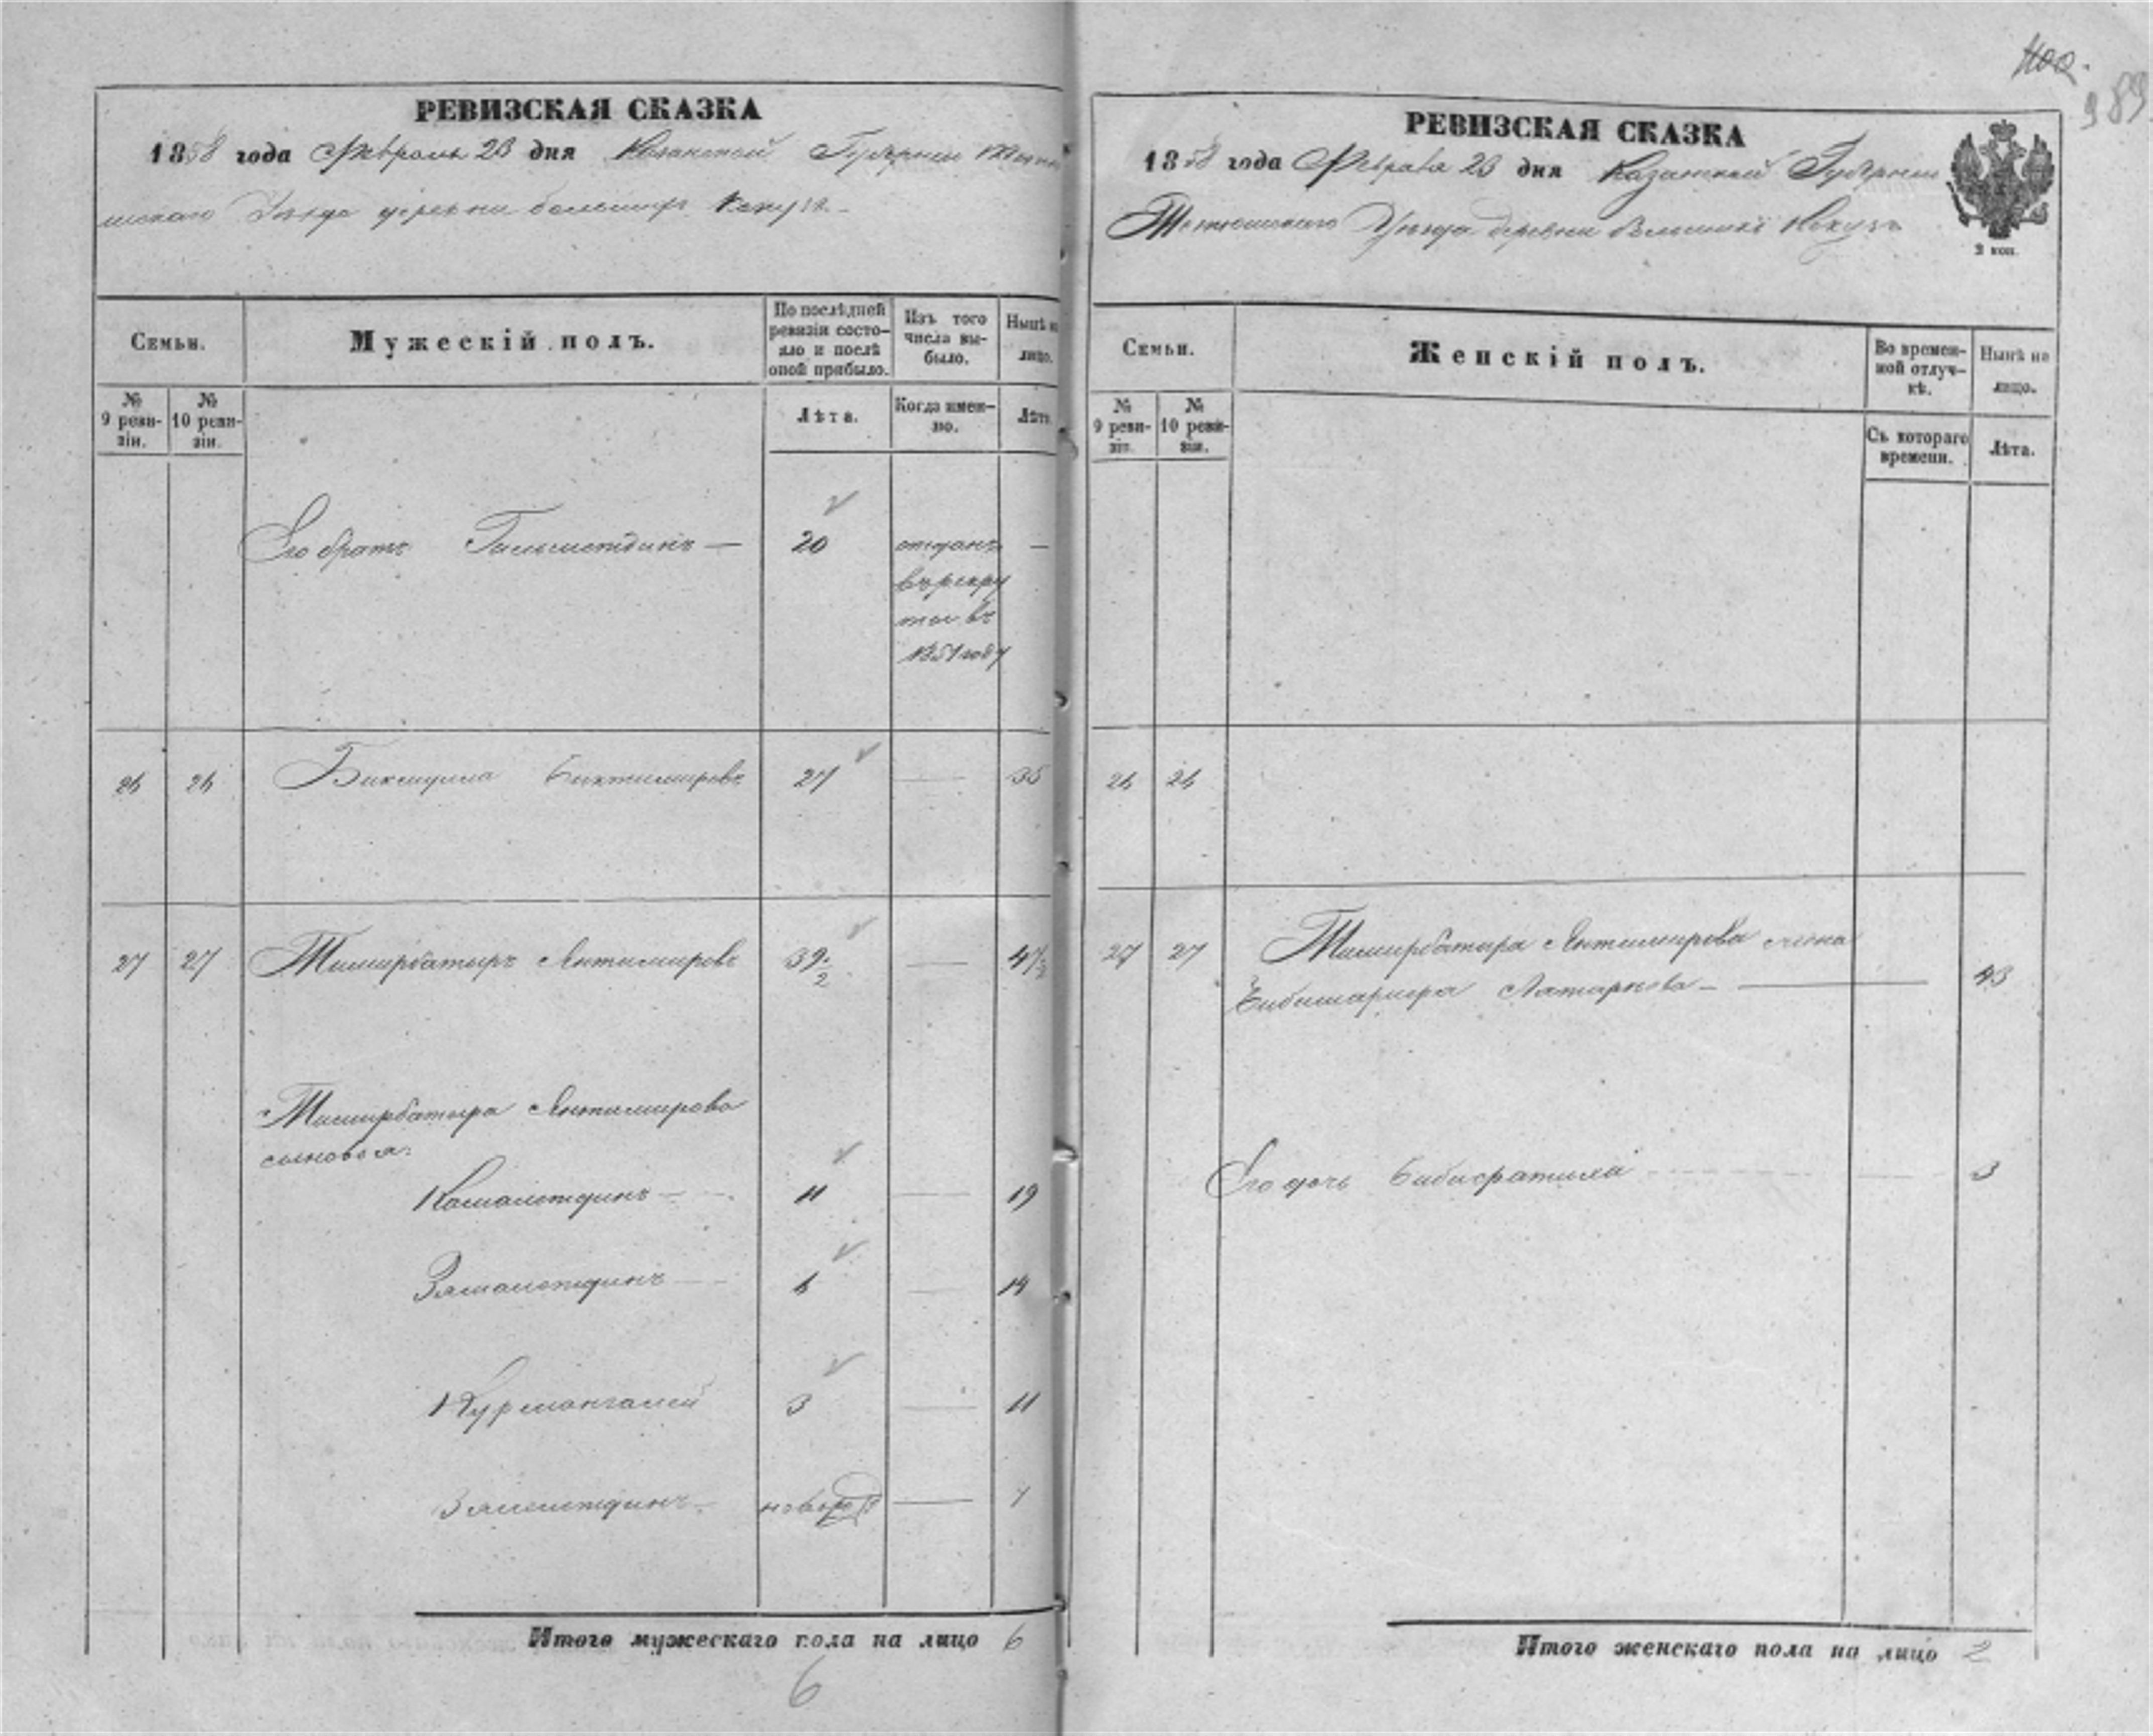 РЕВИЗСКАЯ СКАЗКА
1858 года Февраля 23 дня Казанской Губернии
Уезда деревни
Семьи.
Мужескій полъ.
По послѣдней ревизіи состояло и послѣ оной прибыло.
Изъ того числа выбыло.
Нынѣ на лицо.
№ 9 ревизіи.
№ 10 ревизіи.
Лѣта.
Когда именно.
Лѣта
Его братъ — 20 отданъ —
въ рекру
ты въ
1851 году
26 26 27 — 35
27 27 Тимирбатыръ Янтимировъ 39 1/2 — 47 1/2
Тимирбатыра Янтимирова
сыновья:
Камалетдинъ — 11 — 19
Замалетдинъ — 6 — 14
Курмангалей 3 — 11
новорожд — 7
Итого мужескаго пола на лицо 6
6
Ное.
989
РЕВИЗСКАЯ СКАЗКА
1858 года Февраля 23 дня Казанской Губернии
Тетюшскаго Уезда деревни
3 коп.
Семьи.
Женскій полъ.
Во временной отлучкѣ.
Нынѣ на лицо.
№ 9 ревизіи.
№ 10 ревизіи.
Съ котораго времени.
Лѣта.
26 26
27 27 Тимирбатыра Янтимирова жена
— 43
Его дочь — 3
Итого женскаго пола на лицо 2